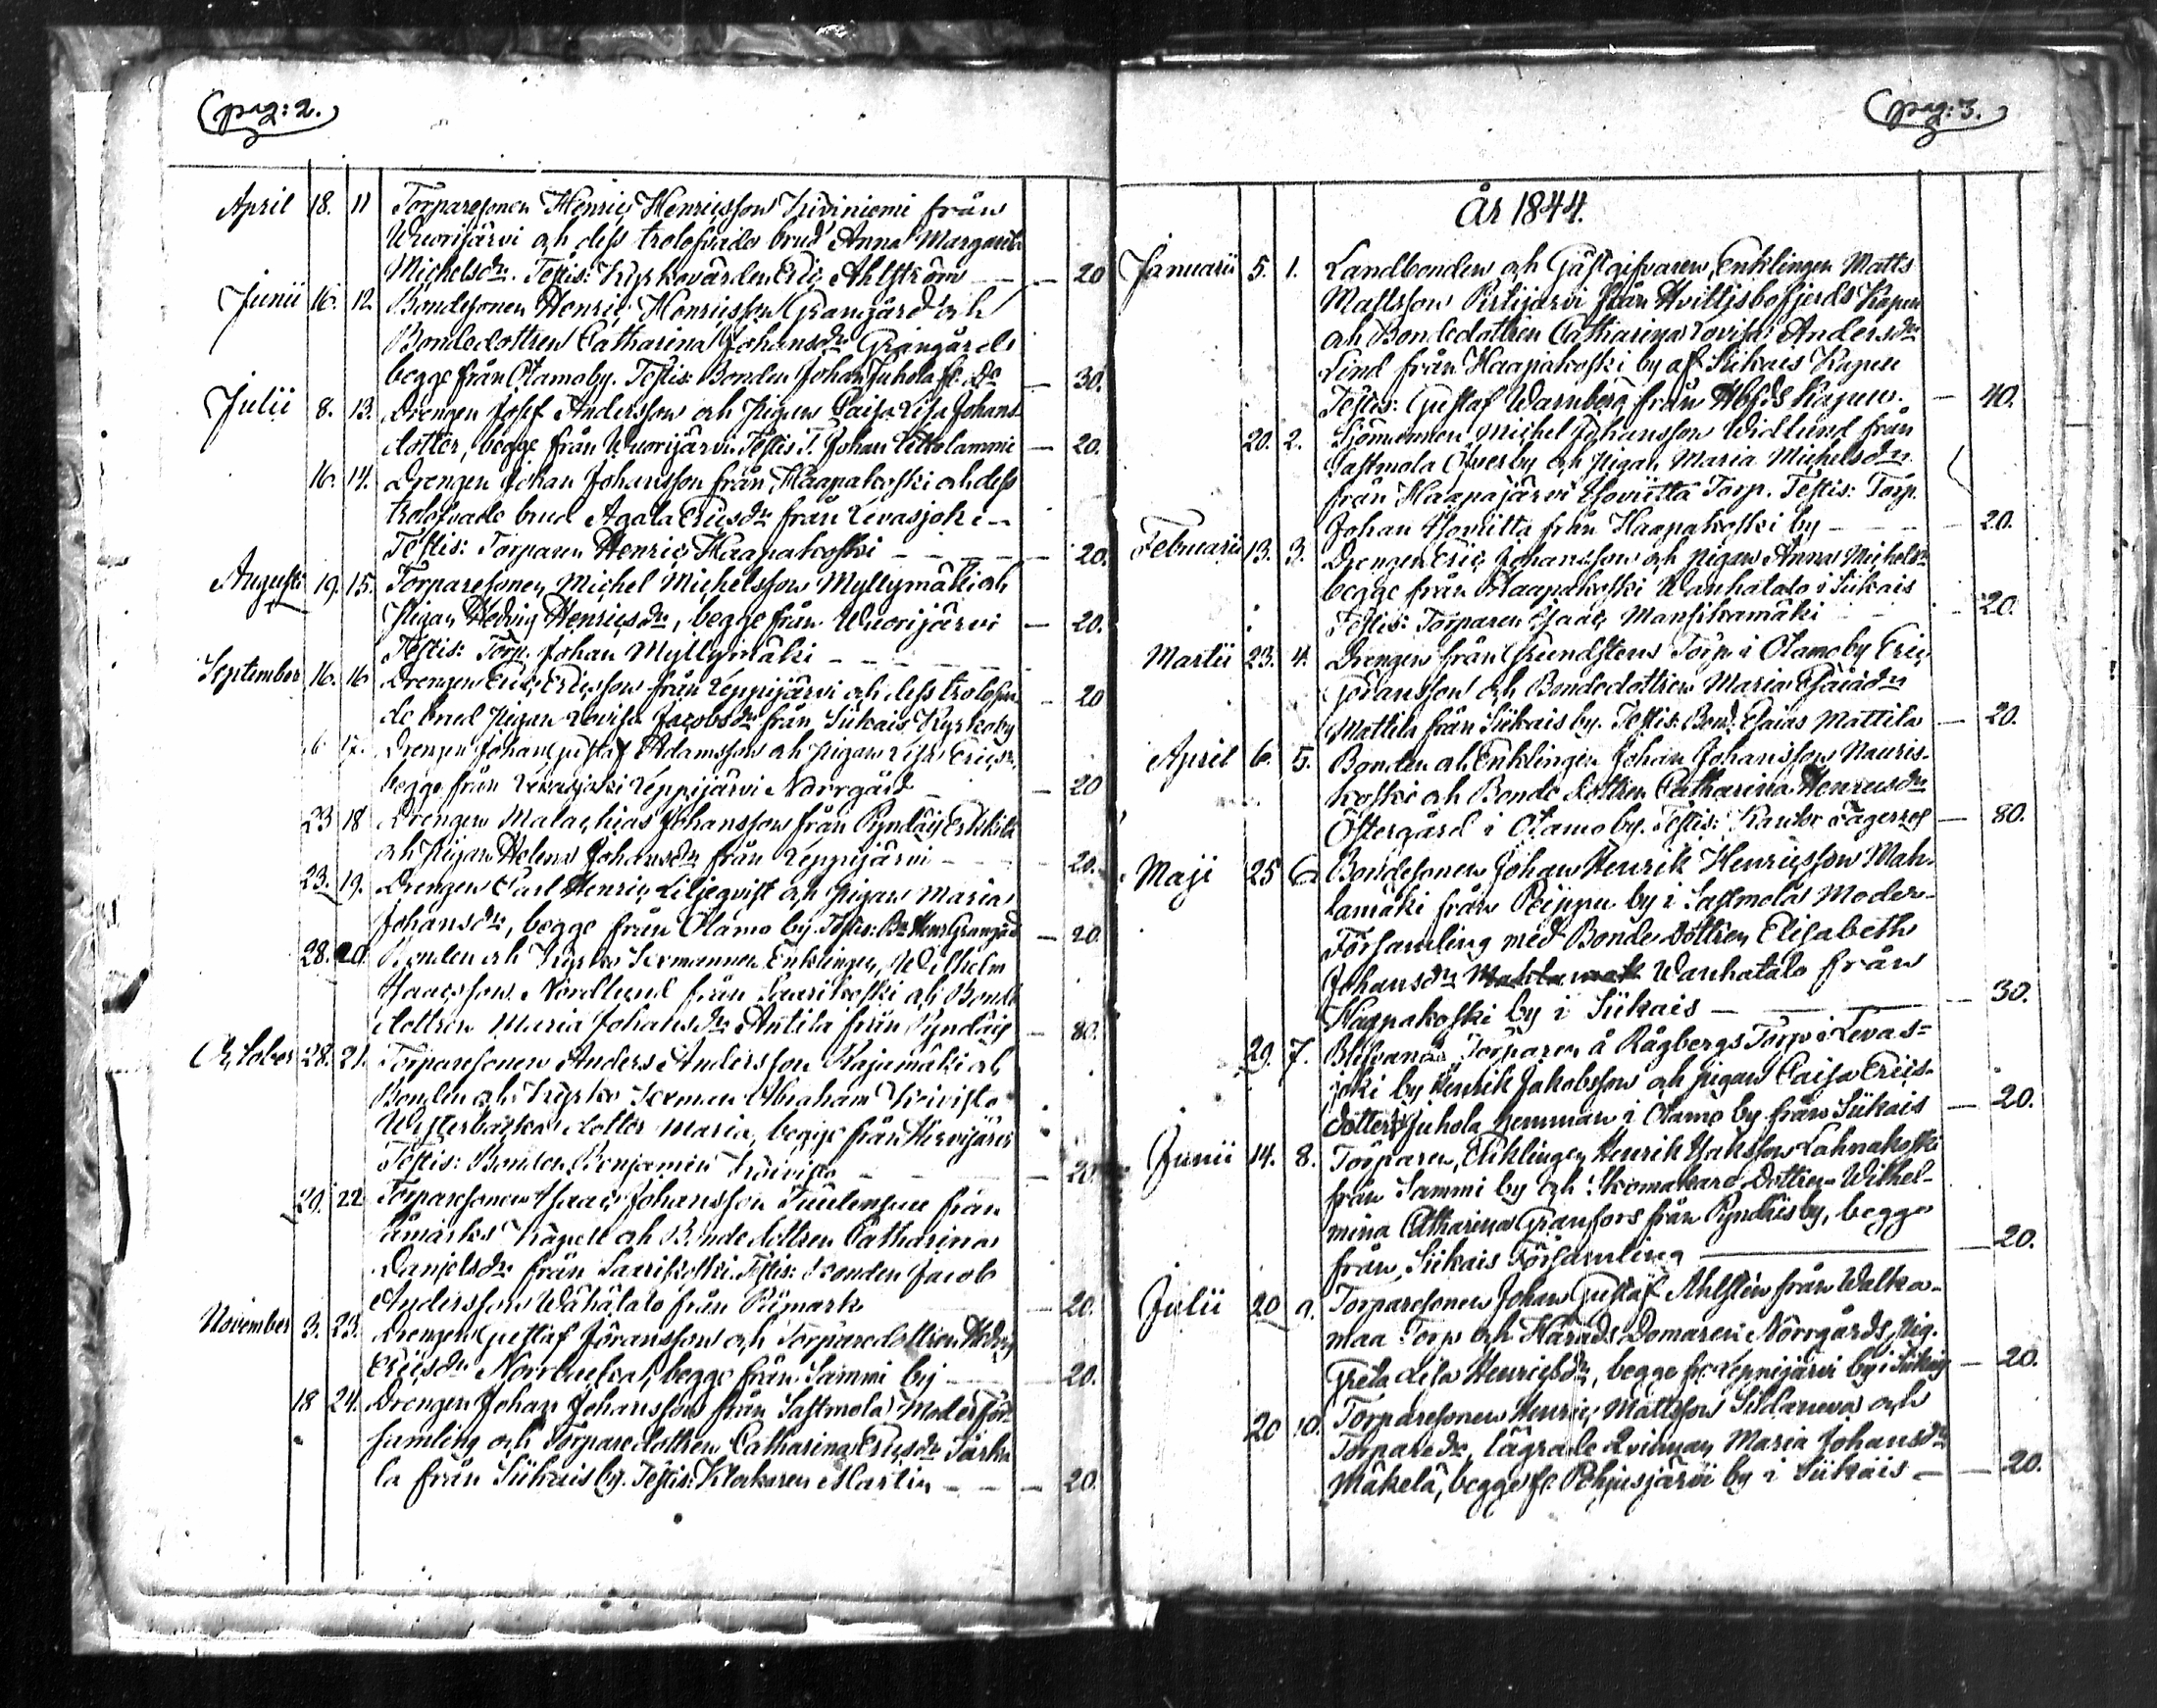 (pag: 2.)
April 18. 11 Torparesonen Henric Henricsson Kiviniemi från
Wuorijärvi och dess trolofvade brud Anna Margareta
Michelsdr. Testis: Kyrkovärden Eric Ahlström — 20
Junii 16. 12 Bondesonen Henric Henricsson Grangård och
Bondedottren Catharina Johansdr Grangård
begge från Otamo by. Testis Bonden Johan Juhola fr. Do — 30.
Julii 8. 13. Drengen Josef Andersson och Pigan Caisa Lisa Johans
dotter, begge från Wuorijärvi Testis T. Johan Lettolammi — 20.
16. 14. Drengen Johan Johansson från Haapakoski och dess
trolofvade brud Agata Ericsdr från Levasjoki —
Testis: Torparen Henric Haapakoski — — — 20.
Augusti 19. 15. Torparesonen Michel Michelsson Myllymäki och
Pigan Hedvig Henricsdr, begge från Wuorijärvi — 20.
Testis: Torp. Johan Myllymäki — — — —
September 16. 16 Drengen Eric Ericsson från Leppijärvi och dess trolofva
de brud Pigan Lovisa Jacobsdr från Siikais Kyrkoby — 20
6 17. Drengen Johan Gustaf Adamsson och Pigan Lisa Ericsdr
begge från Levasjoki Leppijärvi Norrgård — 20
23 18 Drengen Malachias Johansson från Pyndäis Erkkilä
och Pigan Helena Johansdr från Leppijärvi — — 20.
23. 19. Drengen Carl Henric Liljeqvist och Pigan Maria
Johansdr, begge från Otamo by. Testis: Bn Henr Grangård — 20.
28. 20 Bonden och Kyrko Sexmannen Enklingen, Wilhelm
Isaacsson Nordlund från Saarikoski och Bonde
dottren Maria Johansdr Antila från Pyndäis — 80.
October 28. 21. Torparesonen Anders Andersson Kajamäki och
Bonden och Kyrko Sexman Abraham Koivisto
Westerbacka dotter Maria, begge från Hirvijärvi
Testis: Bonden Benjamin Koivisto — 20.
29. 22 Torparesonen Isaac Johansson från
Låmarks Kapell och Bondedottren Catharina
Danielsdr från Saarikoski. Testis: Bonden Jacob
Andersson Wähätalo från Påmark — 20.
November 3. 23. Drengen Gustaf Göransson och Torparedottren Hedvig
Ericsdr Norrbacka, begge från Sammi by — 20.
18 24. Drengen Johan Johansson från Sastmola Moderför-
samling och Torparedottren Catharina Ericsdr Särki
la från Siikais by. Testis: Klockaren Martin — — — 20.
(pag: 3.)
År 1844.
Januarii 5. 1. Landbonden och Gästgifvaren, Enklingen Matts
Mattsson Pirtijärvi från Hvittisbofjerds Kapell
och Bondedottren Catharina Lovisa Andersdr
Lind från Haapakoski by af Siikais Kapell
Testis: Gustaf Warnberg från Hbfds Kapell. — 40.
20. 2. Sjömannen Michel Johansson Widlund från
Sastmola Öfverby och Pigan Maria Michelsdr
från Haapajärvi Torp. Testis: Torp.
Johan från Haapakoski by — — — 20.
Februarii 13. 3. Drengen Eric Johansson och Pigan Anna Michelsdr
begge från Haapakoski Wanhatalo i Siikais
Testis: Torparen Isaac Mansikkamäki — 20.
Martii 23. 4. Drengen från Grundstens Torp i Otamo by Eric
Göransson och Bondedottren Maria Esaiædr
Mattila från Siikais by. Testis: Bond. Esaias Mattila — 20.
April 6. 5. Bonden och Enklingen Johan Johansson Nauris-
koski och Bonde dottren Catharina Henricsdr
Östergård i Otamo by. Testis: Kantor Fagerros — 80.
Maji 25 6. Bondesonen Johan Henrik Henricsson Mah-
lamäki från Peippu by i Sastmola Moder-
församling med Bonde Dottren Elisabeth
Johansdr Wanhatalo från
Haapakoski by i Siikais — — 30.
29. 7. Blifvande Torparen å Rågbergs Torp i Levas-
joki by Henrik Jakobsson och Pigan Caisa Erics-
dotter Juhola hemman i Otamo by från Siikais — 20.
Junii 14. 8. Torparen, Enklingen Henrik Isaksson Lahnakoski
från Sammi by och Skomakare Dottren Wilhel-
mina Catharina Granfors från Pyndäis by, begge
från Siikais Församling — 20.
Julii 20 9. Torparesonen Johan Gustaf Ahlsten från Walka-
maa Torp och Härads Domaren Norrgårds Pig.
Greta Lisa Henricsdr, begge fr. Leppijärvi by i Siikais — 20.
20 10. Torparesonen Henric Mattsson Sildaneva och
Torparedr, lägrade Qvinnan Maria Johansdr
Mäkelä, begge fr. Pohjusjärvi by i Siikais — — 20.